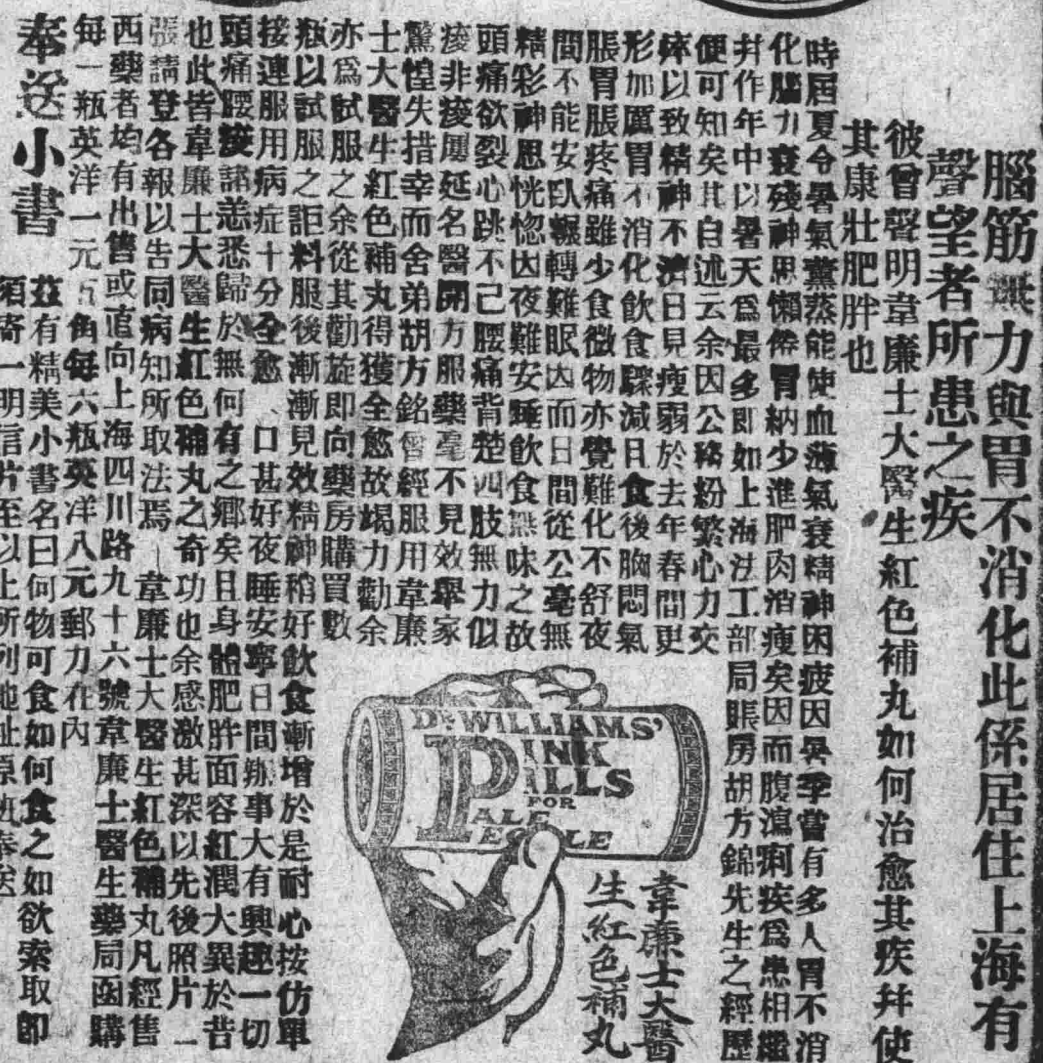 腦筋無力與胃不消化此係居住上海有
聲望者所患之疾
彼曾聲明韋廉士大醫生紅色補丸如何治愈其疾幷使
其康壯肥胖也
時屆夏令暑氣薰蒸能使血薄氣衰精神困疲因異季當有多人胃不消
化腦力衰殘神思懶倦胃納少進肥肉消瘦矣因而腹瀉痢疾爲患相繼
幷作年中以暑天爲最多卽如上海法工部局賬房胡方錦先生之經歷
便可知矣其自述云余因公務紛繁心力交
瘁以致精神不濟日見瘦弱於去年春間更
形加厲胃不消化飲食驟減且食後胸悶氣
脹胃脹疼痛雖少食微物亦覺難化不舒夜
間不能安臥輾轉難眠因而日間從公毫無
精彩神思恍惚因夜難安睡飲食無味之故
頭痛欲裂心跳不已腰痛背楚四肢無力似
痠非痠屢延名醫開方服藥毫不見效舉家
驚惶失措幸而舍弟胡方銘曾經服用韋廉
士大醫生紅色補丸得獲全愈故竭力勸余
亦爲試服之余從其勸旋即向藥房購買數
瓶以試服之詎料服後漸漸見效精神稍好飲食漸增於是耐心按仿單
接連服用病症十分全愈 口甚好夜睡安寧日間辦事大有興趣一切
頭痛腰痠諸恙悉歸於無何有之鄉矣且身體肥胖面容紅潤大異於昔
也此皆韋廉士大醫生紅色補丸之奇功也余感激甚深以先後照片一
張請登各報以告同病知所取法焉 韋廉士大醫生紅色補丸凡經售
西藥者均有出售或直向上海四川路九十六號韋廉士醫生藥局函購
每一瓶英洋一元五角每六瓶英洋八元郵力在內
奉送小書 茲有精美小書名曰何物可食如何食之如欲索取卽
須寄一明信片至以上所列地址原班奉送
DR WILLIAMS'
PINK
PILLS
FOR
PALE
PEOPLE
韋廉士大醫
生紅色補丸